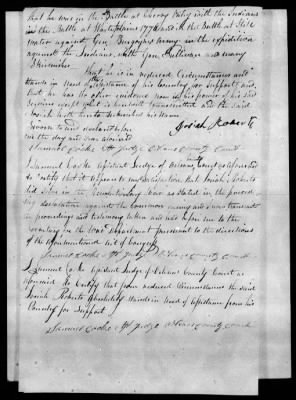 that he was in the Battle at Cherry Valey with the Indians
in the Battle at Whiteplains 1776 was in the Battle at Still
water against Gen. Burgoyne's army in the expedition
against the Indians with Gen. Sullivan and many
Skirmishes
That he is in reduced Circumstances and
stands in need of assistance of his Country for support and
that he has no other evidence now in his power of his said
services except what is hereunto transmitted and the said
Josiah doth hereto subscribe his name
Sworn to and declared before me
the day and year aforesaid
Josiah Roberts
Samuel Cooke Judge County Court
I Samuel Cooke assistant Judge of County as aforesaid
do certify that it appears to my satisfaction that Josiah Roberts
did serve in the Revolutionary War as stated in the preced-
ing declaration against the Common enemy and I now transmit
the proceedings and testimony taken and had before me to the
Secretary for the War department pursuant to the directions
of the aforementioned act of Congress
Samuel Cooke Judge County Court
I Samuel Cooke assistant Judge of County Court as
aforesaid do Certify that from reduced Circumstances the said
Josiah Roberts absolutely Stands in need of assistance from his
Country for Support
Samuel Cooke Judge County Court